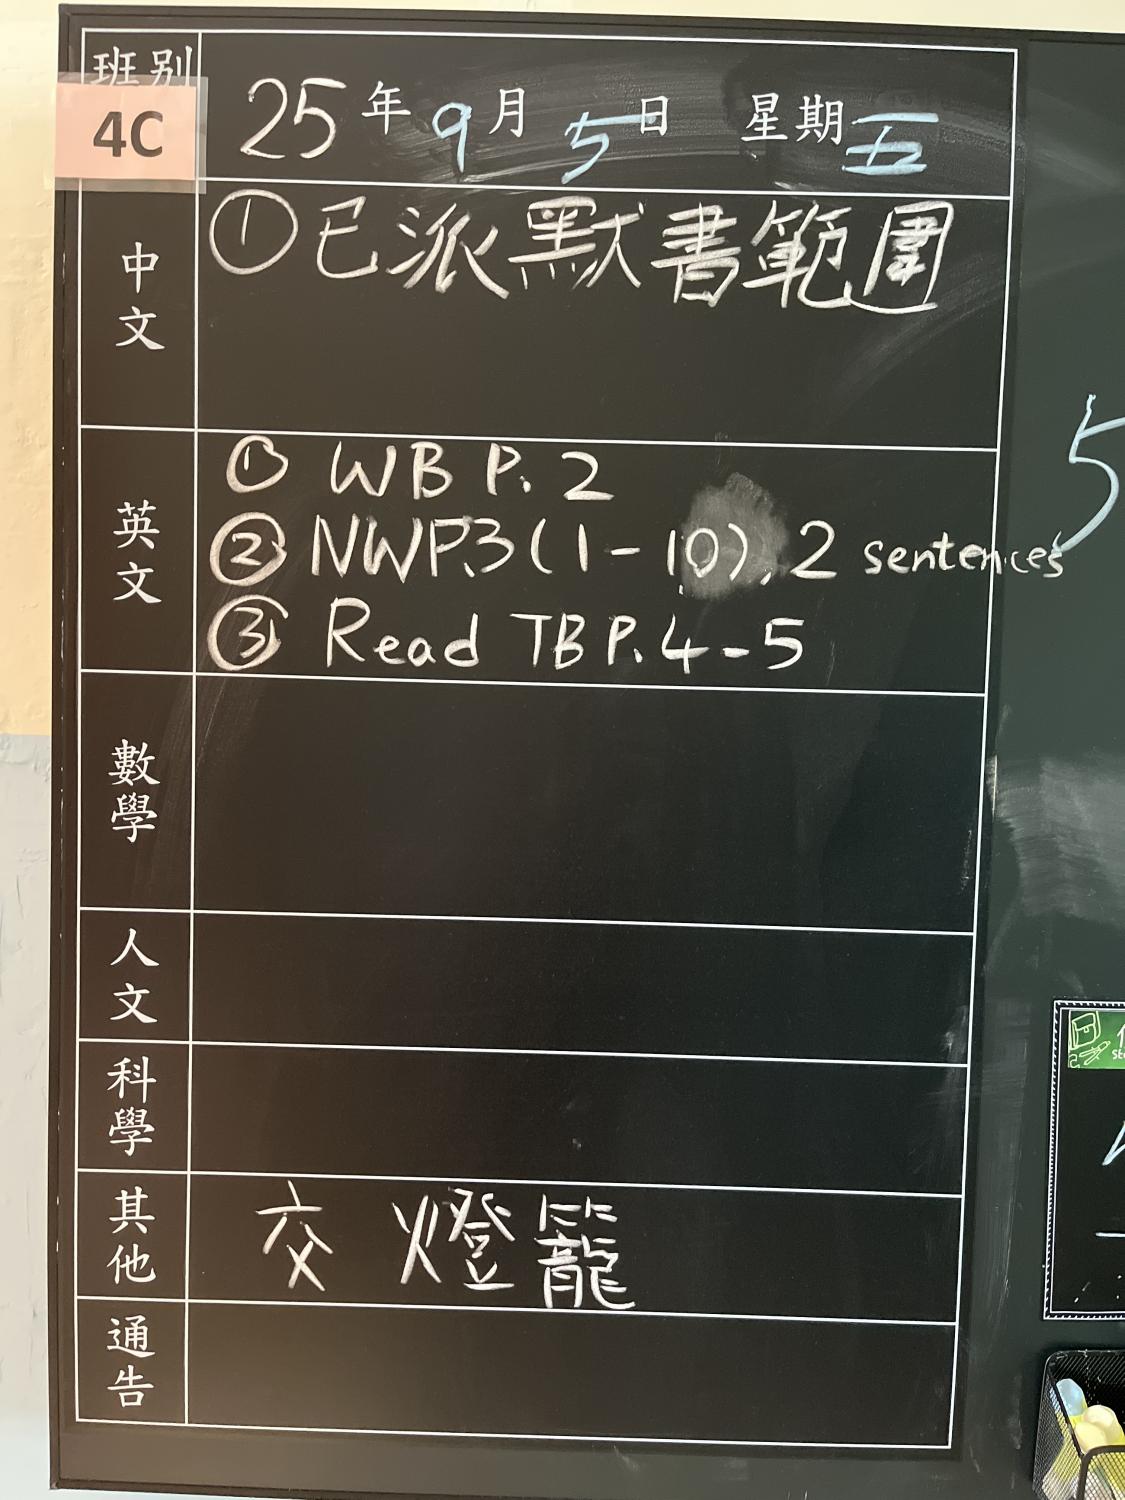 班別
4C
25年9月5日 星期五
中文
①已派默書範圍
英文
① WB P.2
② NWP.3(1-10), 2 sentences
③ Read TB P.4-5
數學
人文
科學
其他
交 燈籠
通告
5